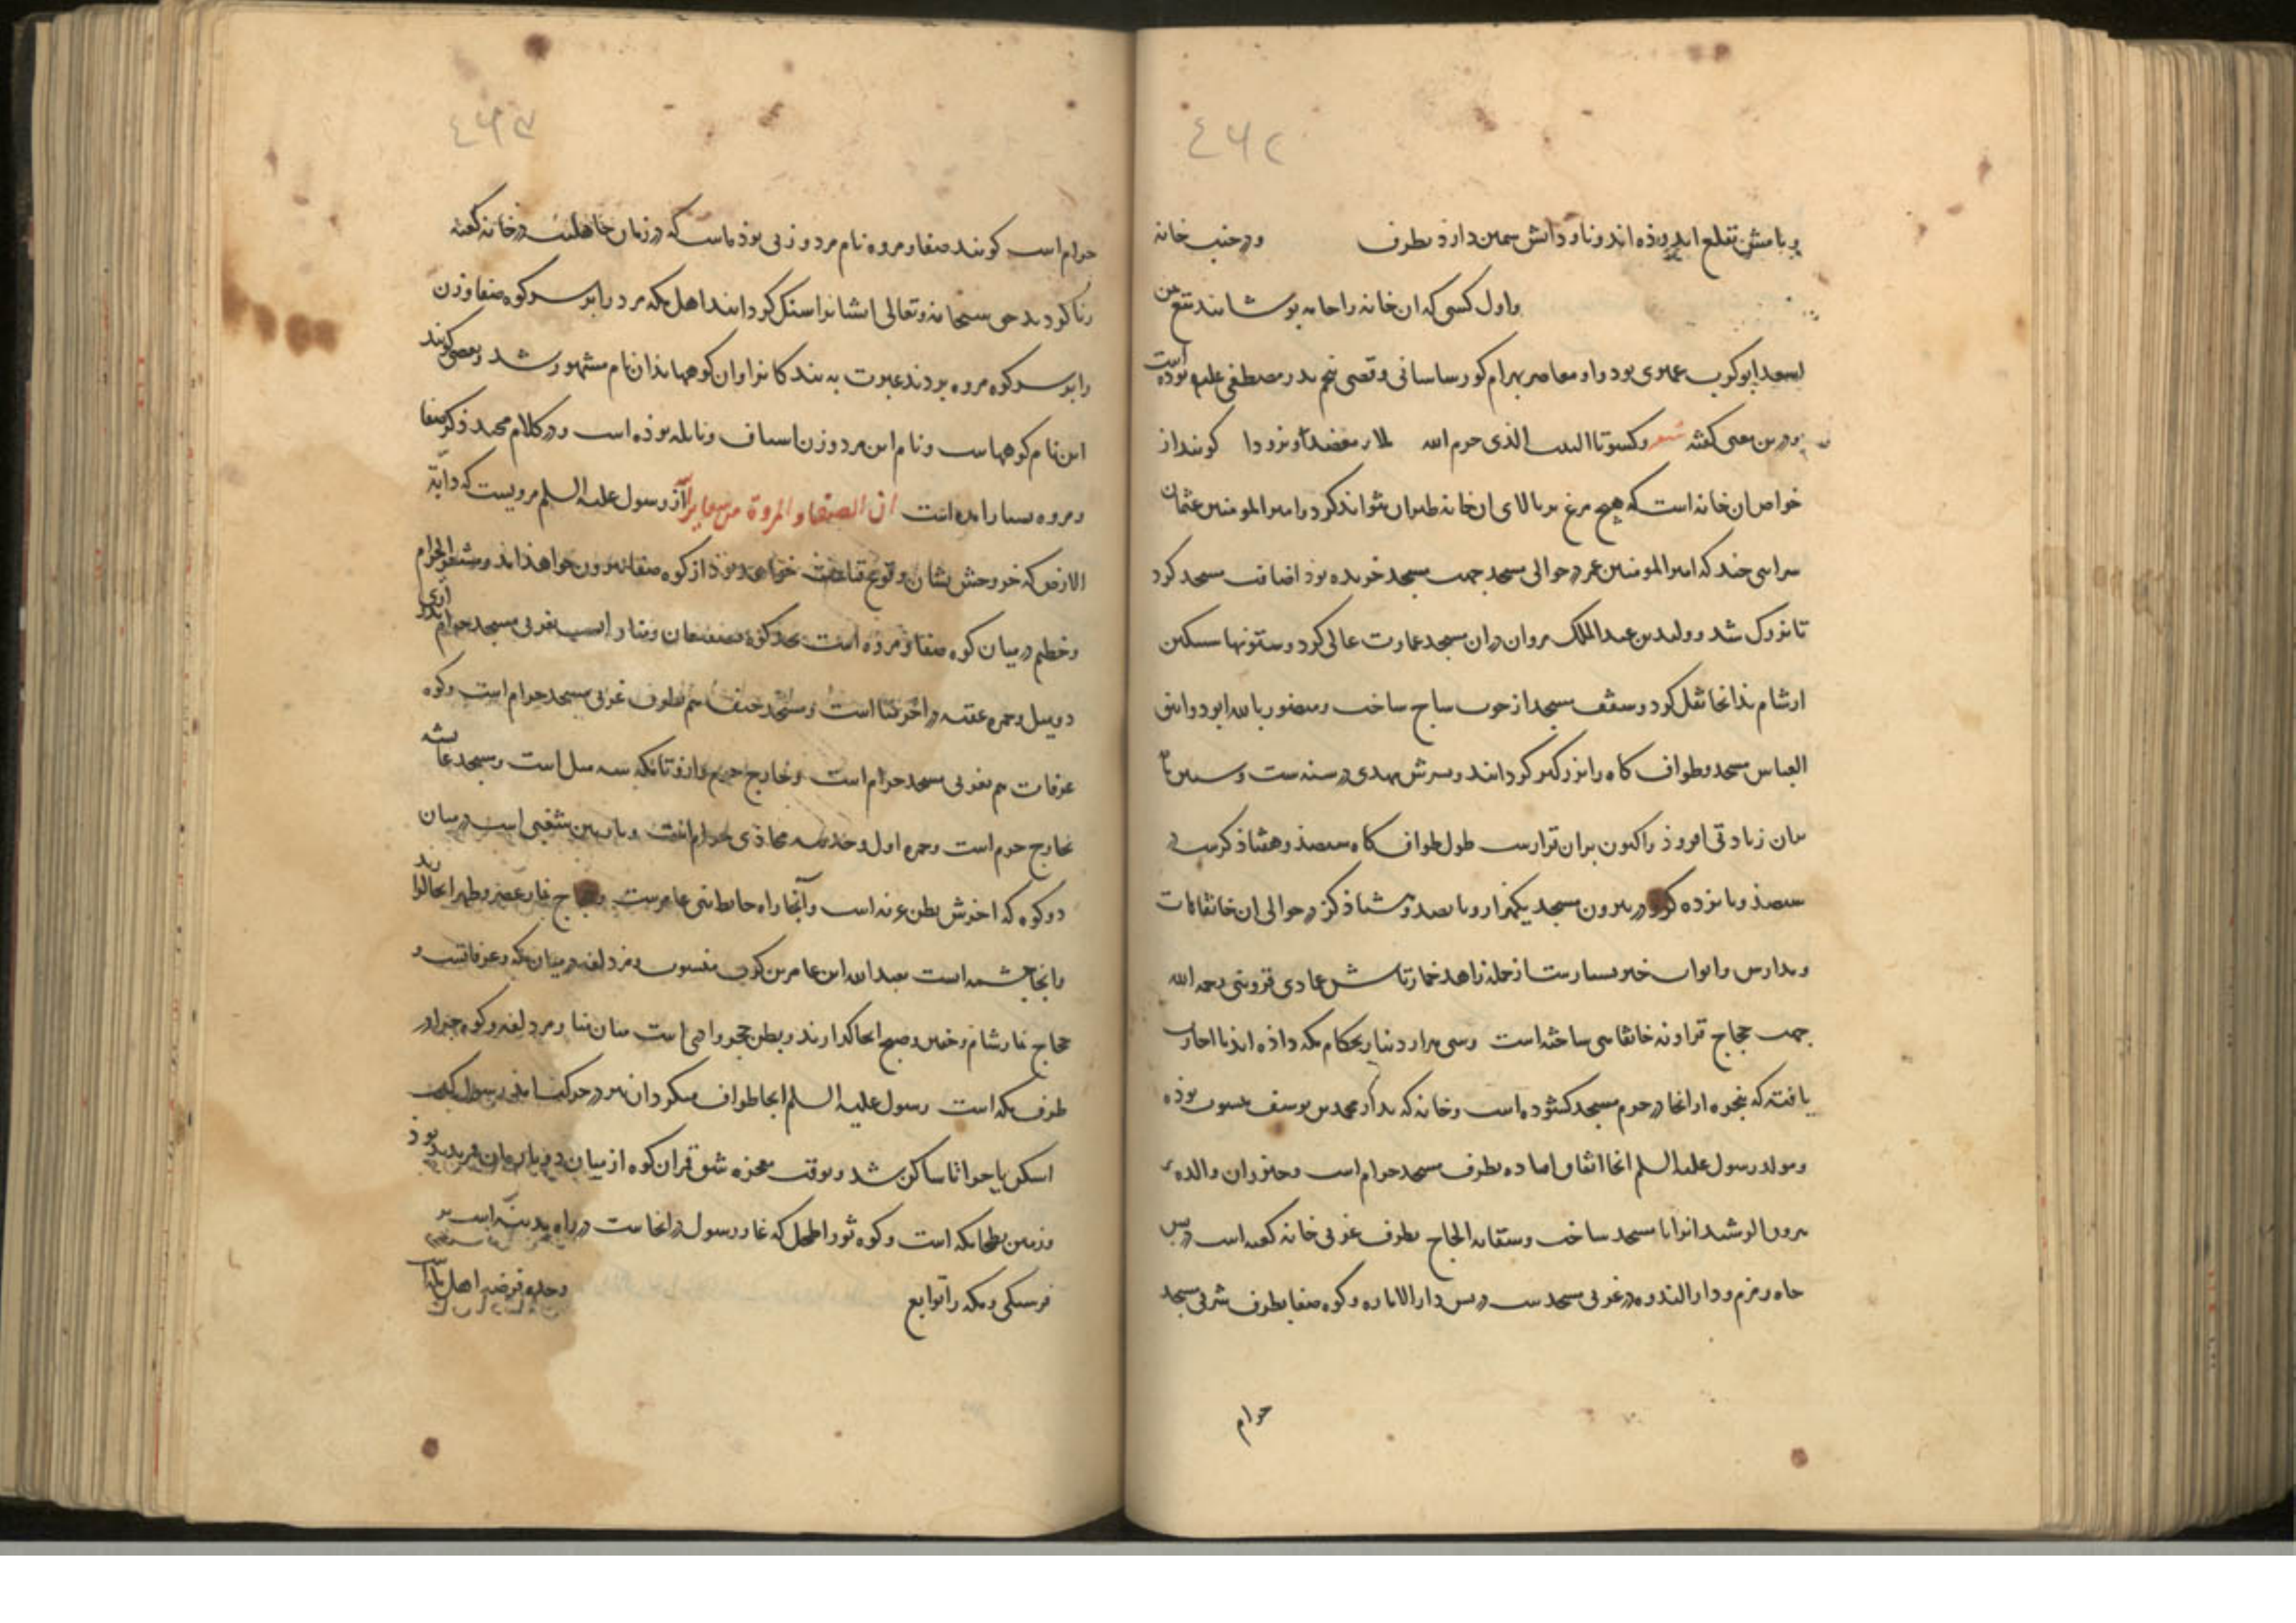 ٤٦٢
و بامش تقلع اندوذه اند و ناودانش سمین دارد بطرف و در جنب خانه
و اول کسی که ان خانه را جامه پوشانند تبع بن
اسعد ابو کرب حمیری بود و او معاصر بهرام کور ساسانی و قصی پنجم بدر مصطفی علیه بوده است
و درین معنی کفته شعر و کسوتا البیت الذی حرم الله ملاء معضدا و برودا کویند از
خواص ان خانه است که هیچ مرغ بر بالای ان خانه طیران نتواند کرد و امیر المومنین عثمان
سرایی چند که امیر المومنین عمر در حوالی مسجد جهت مسجد خریده بود اضافت مسجد کرد
تا بزرک شد و ولید بن عبد الملک مروان دران مسجد عمارت عالی کرد و ستونها سنکین
از شام بذانجا نقل کرد و سقف مسجد از چوب ساج ساخت و منصور بالله ابو دوانیق
العباس مسجد و طواف کاه را بزرکتر کردانید و پسرش مهدی در سنه ست و ستین تا
بران زیادتی افزود و اکنون بران قرارست طول طواف کاه سیصد و هشتاد کزست در
سیصد و پانزده کز و در بیرون مسجد یکهزار و پانصد و هشتاد کز در حوالی ان خانقاهات
و مدارس و ابواب خیر بسیارست از جمله زاهد خمارتاش عمادی قزوینی رحمه الله
جهت حجاج قزاونه خانقاهی ساخته است و سی هزار دینار بحکام مکه داذه اند تا اجازت
یافته که پنجره از انجا در حرم مسجد کشوده است و خانه که بدار محمد بن یوسف منسوب بوذه
و مولد رسول علیه السلم انجا اتفاق افتاده بطرف مسجد حرام است و خیزران والده
هرون الرشید انرا با مسجد ساخت و سقایه الحاج بطرف غربی خانه کعبه است در پس
چاه زمزم و دار الندوه در غربی مسجدست در پس دار الاماره و کوه صفا بطرف شرقی مسجد
حرام
٤٦٣
حرام است کویند صفا و مروه نام مرد و زنی بوذه است که در زمان جاهلیت در خانه کعبه
زنا کردند حق سبحانه و تعالی ایشانرا سنک کردانید اهل مکه مرد را بر سر کوه صفا و زن
را بر سر کوه مروه بردند عبرت بینندکانرا و ان کوهها بذان نام مشهور شد و بعضی کویند
این نام کوههاست و نام این مرد و زن اساف و نایله بوذه است و در کلام مجید ذکر صفا
و مروه بسیار امده است ان الصفا و المروة من شعایر الله از رسول علیه السلم مرویست که دابة
الارض که خروجش نشان وقوع قیامت خواهد بوذ از کوه صفا بیرون خواهذ امد و مشعر الحرام
و حطیم در میان کوه صفا و مروه است بحد کوه قعیقعان و منا راست بغربی مسجد حرام
دو میل و جمره عقبه در اخر منا است و مسجد خیف هم بطرف غربی مسجد حرام است و کوه
عرفات هم بغربی مسجد حرام است و خارج حرم و ازو تا مکه سه میل است و مسجد عایشه
خارج حرم است و جمره اول و حدیبیه محاذی حرام است و مازمین شعبی است در میان
دو کوه که اخرش بطن عرنه است و آنجا راه حایط بنی عامرست و حجاج نماز عصر و ظهر انجا کزارند
و انجا چشمه است بعبد الله ابن عامر بن کریز منسوب و مزدلفه در میان مکه و عرفاتست و
حجاج نماز شام و خفتن و صبح انجا کذارند و بطن محسر وادی است میان منا و مزدلفه و کوه حرا در
طرف مکه است رسول علیه السلم انجا طواف میکرد ان
اسکن یا حرا تا ساکن شد و بوقت معجزه شق قمر ان کوه از میان دو پاره ماه بدید بود
و زمین بطحا مکه است و کوه ثور اطحل که غار رسول در انجاست در راه مدینه است بر
فرسنکی و مکه را توابع